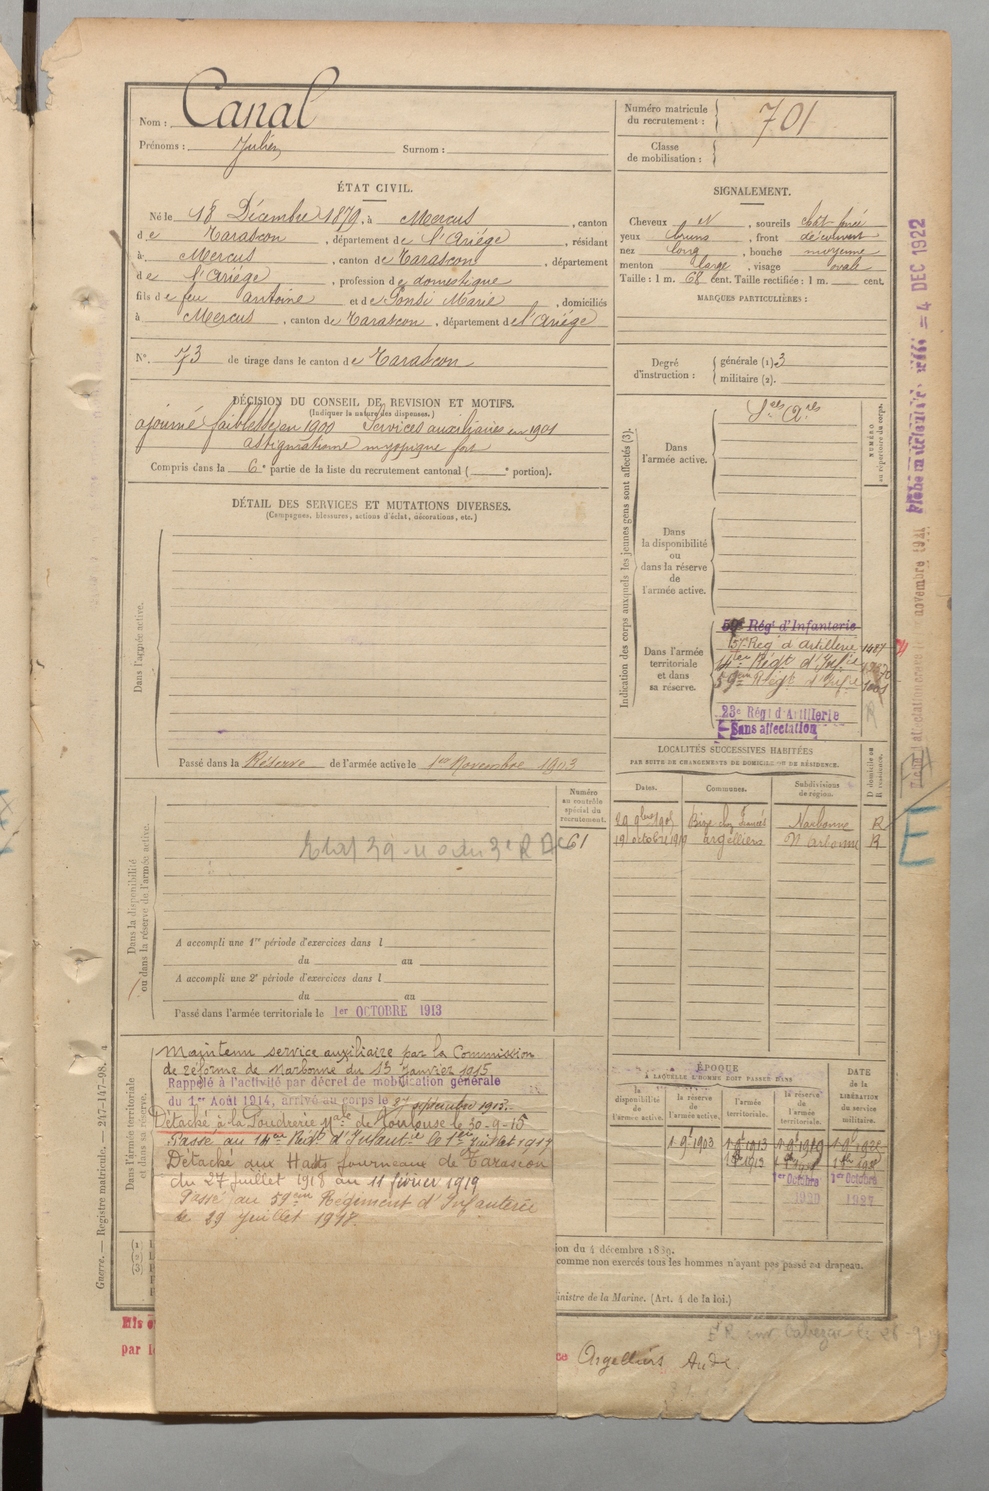 Nom : Canal
Prénoms : Julien Surnom :
Numéro matricule du recrutement : 701
Classe de mobilisation :
ÉTAT CIVIL.
Né le 18 Décembre 1879, à Mercus, canton
de Tarascon, département de l'Ariége, résidant
à Mercus, canton de Tarascon, département
de l'Ariége, profession de domestique
fils de feu antoine et de Gonse Marie, domiciliés
à Mercus, canton de Tarascon, département de l'Ariége
N°. 73 de tirage dans le canton de Tarascon
SIGNALEMENT.
Cheveux N, sourcils chat-foncé
yeux bruns, front découvert
nez long, bouche moyenne
menton large, visage ovale
Taille : 1 m. 68 cent. Taille rectifiée : 1 m. cent.
MARQUES PARTICULIÈRES :
Degré d'instruction : générale (1). 3
militaire (2).
DÉCISION DU CONSEIL DE REVISION ET MOTIFS.
(Indiquer la nature des dispenses.)
ajourné faiblesse en 1900 Services auxiliaires en 1901
astigmatisme myopique fort
Compris dans la 6e partie de la liste du recrutement cantonal ( e portion).
DÉTAIL DES SERVICES ET MUTATIONS DIVERSES.
(Campagnes, blessures, actions d'éclat, décorations, etc.)
Dans l'armée active.
Passé dans la Réserve de l'armée active le 1er Novembre 1903
Indication des corps auxquels les jeunes gens sont affectés (3).
NUMÉRO au répertoire du corps.
Dans l'armée active.
Sces Ares
Dans la disponibilité ou dans la réserve de l'armée active.
Dans l'armée territoriale et dans sa réserve.
Régt d'Infanterie
57e Reg' d'Artillerie
14ter Régt d'Infie
59em Régt d'Infie
23e Régt d'Artillerie
Sans affectation
LOCALITÉS SUCCESSIVES HABITÉES
PAR SUITE DE CHANGEMENTS DE DOMICILE OU DE RÉSIDENCE.
Dates. Communes. Subdivisions de région. D domicile ou R résidence.
Narbonne R
19 octobre 1919 argelliers Narbonne R
Dans la disponibilité ou dans la réserve de l'armée active.
Numéro au contrôle spécial du recrutement.
61
A accompli une 1re période d'exercices dans l
du au
A accompli une 2e période d'exercices dans l
du au
Passé dans l'armée territoriale le 1er OCTOBRE 1913
Dans l'armée territoriale et dans sa réserve.
Maintenu service auxiliaire par la Commission
de réforme de Narbonne du 13 Janvier 1915
Rappelé à l'activité par décret de mobilisation générale
du 1er Août 1914, arrivé au corps le 27 septembre 1915.
Détaché à la Poudrerie Nale de Toulouse le 30-9-15
Passé au 14ter Régt d'Infantie le 1er juillet 1917
Détaché aux Hauts fourneaux de Tarascon
du 27 juillet 1918 au 11 février 1919
Passé au 59em Régiment d'Infanterie
le 29 juillet 1918.
ÉPOQUE
À LAQUELLE L'HOMME DOIT PASSER DANS
la disponibilité de l'armée active. la réserve de l'armée active. l'armée territoriale. la réserve de l'armée territoriale.
DATE de la LIBÉRATION du service militaire.
1 9e 1903 1 9e 1913 1 9e 1919
1er Octobre 1920 1er Octobre 1927
(1)
(2)
(3)
ion du 4 décembre 1889.
comme non exercés tous les hommes n'ayant pas passé au drapeau.
inistre de la Marine. (Art. 4 de la loi.)
Guerre. — Registre matricule. — 247-147-98.
Argelliers Aude
= 4 DEC 1922